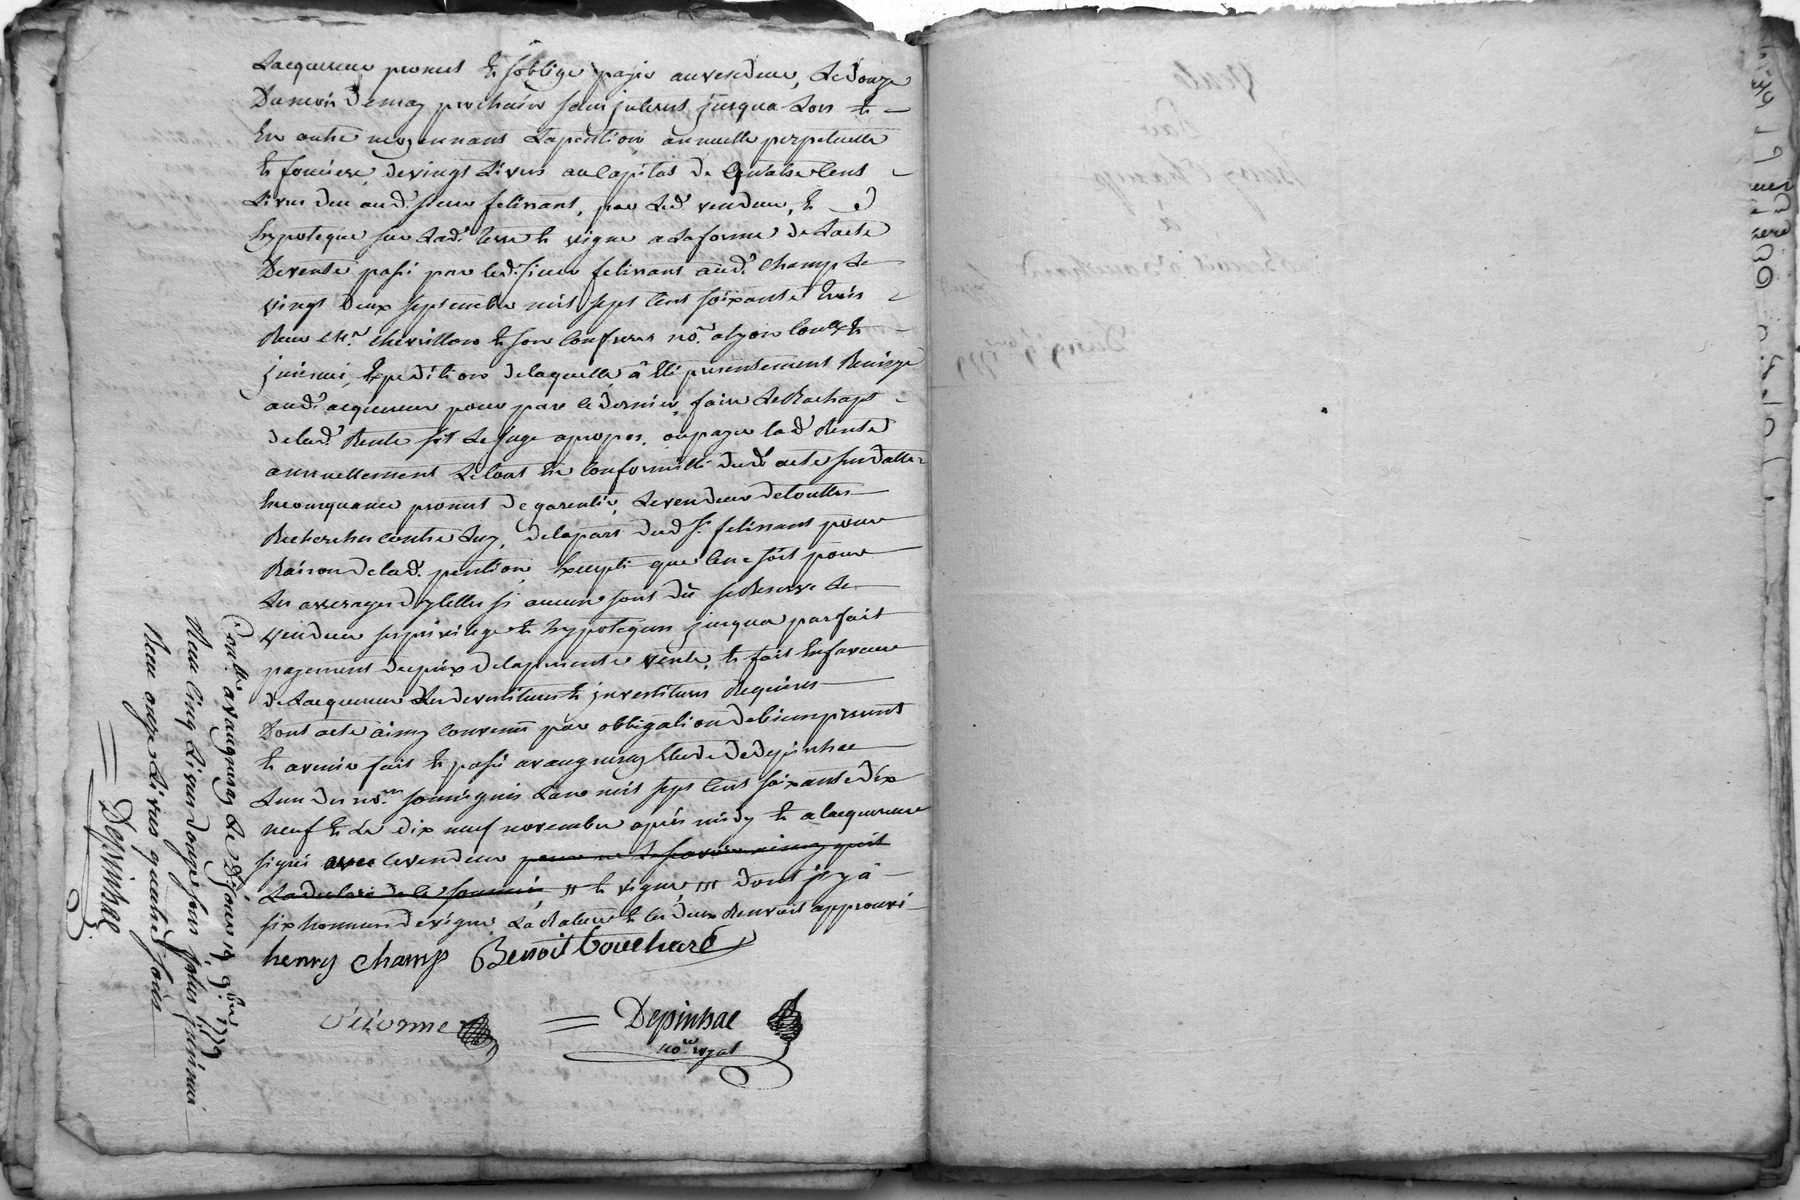 Lacquereur promet & soblige payer au vendeur, Le douze
Du mois De may prochain sans interest jusqua Lors &
En outre moyennant La pention annuelle perpetuelle
& fonciere, de vingt Livres au Capital de Quatre Cent
Livres due aud. sieur felissant, par Led. vendeur, &
hypotequé sur Lad. terre & vigne a La forme de Lacte
De vente passé par led. sieur felissant aud. Champ Le
vingt Deux septembre mil sept Cent soixante trois
Reçu Me. chevillon & son Confrere no.re a lyon Conllé &
jnsinué, Expedition de laquelle a Eté presentement Remise
aud. acquereur pour par ce dernier, faire Le Rachapt
de lad. Rente s'il Le juge apropos, ou payer lad. Rente
annuellement Le tout En Conformitté dud. acte susdatté
En consequance promet de garentir, Le vendeur de touttes
Recherches contre Luy, de la part dud. Sr. felissant pour
Raison de lad. pention, Excepté que Ce ne soit pour
Les arrerages d'ycelles si aucuns sont dû se Reserve Le
vendeur ses privilege & hypoteques jusqua parfait
payement du prix de la presente vente, & fait En faveur
de Lacquereur Les devestitures & jnvestitures Requises
Dont acte ainsy convenu par obligation de biens presents
& avenir fait & passé a vaugneray Etude de depinhac
Lun des no.res soussignés Lan mil sept Cent soixante dix
neuf & Le dix neuf novembre après midy & a lacquereur
signé avec le vendeur pour ne le sçavoir ainsy quil
La declaré de ce sommé // & vigne /// dont jl y a
six hommées de vigne, La Rature & les deux Renvois approuvé
henry champ Benoit bouchard
Depinhac
no.re royal
Con.llé a vaugneray Le Dit jour 19 9bre 1779
Reçu Cinq Livres douze sous
Reçu onze Livres quatre sous
Depinhac
Vente
Par
Henry Champ
à
Benoit Bouchard
Du 19 9bre 1779